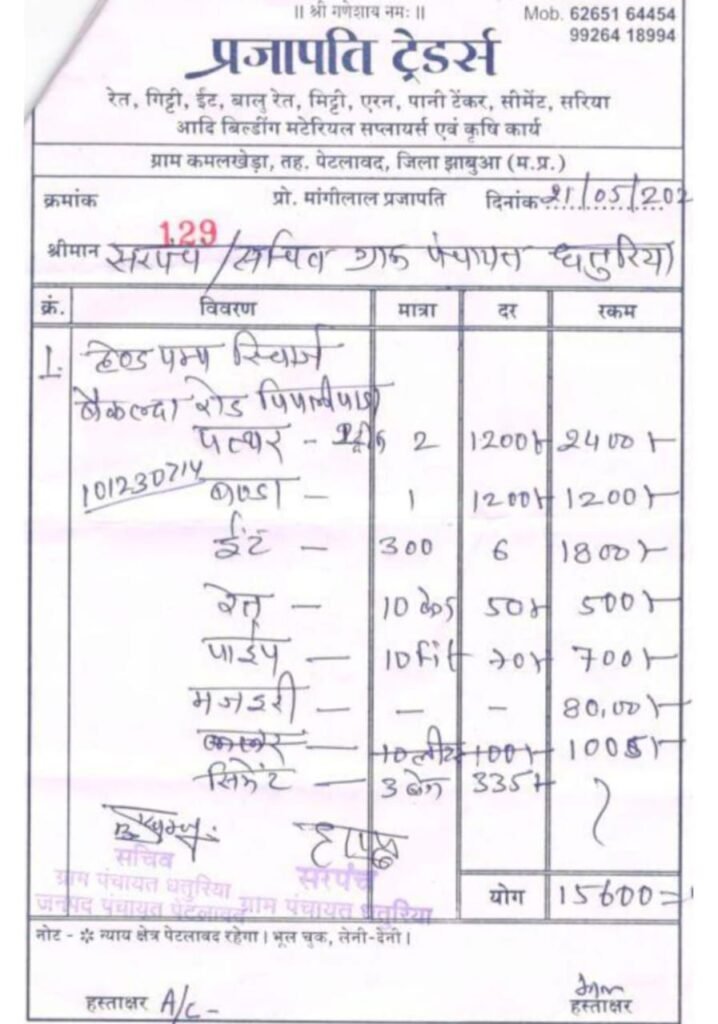 ॥ श्री गणेशाय नमः ॥
Mob. 62651 64454
99264 18994
प्रजापति ट्रेडर्स
रेत, गिट्टी, ईट, बालु रेत, मिट्टी, एरन, पानी टेंकर, सीमेंट, सरिया
आदि बिल्डींग मटेरियल सप्लायर्स एवं कृषि कार्य
ग्राम कमलखेड़ा, तह. पेटलावद, जिला झाबुआ (म.प्र.)
क्रमांक प्रो. मांगीलाल प्रजापति दिनांक 21/05/202
129
श्रीमान सरपंच / सचिव ग्राम पंचायत धतुरिया
क्रं. विवरण मात्रा दर रकम
1. हेण्ड पम्प रिचार्ज
रोड
पत्थर - 2 1200/- 2400/-
101230714
- 1 1200/- 1200/-
ईंट - 300 6 1800/-
रेत - 10 50/- 500/-
पाईप - 10 fit 70/- 700/-
मजदूरी - - - 80,00/-
- 10 100/- 1005/-
सिमेंट - 3 बेग 335/-
सचिव
ग्राम पंचायत धतुरिया
जनपद पंचायत पेटलावद
सरपंच
ग्राम पंचायत धतुरिया
योग 15600=
नोट - ❉ न्याय क्षेत्र पेटलाबद रहेगा। भूल चुक, लेनी-देनी।
हस्ताक्षर A/c - हस्ताक्षर